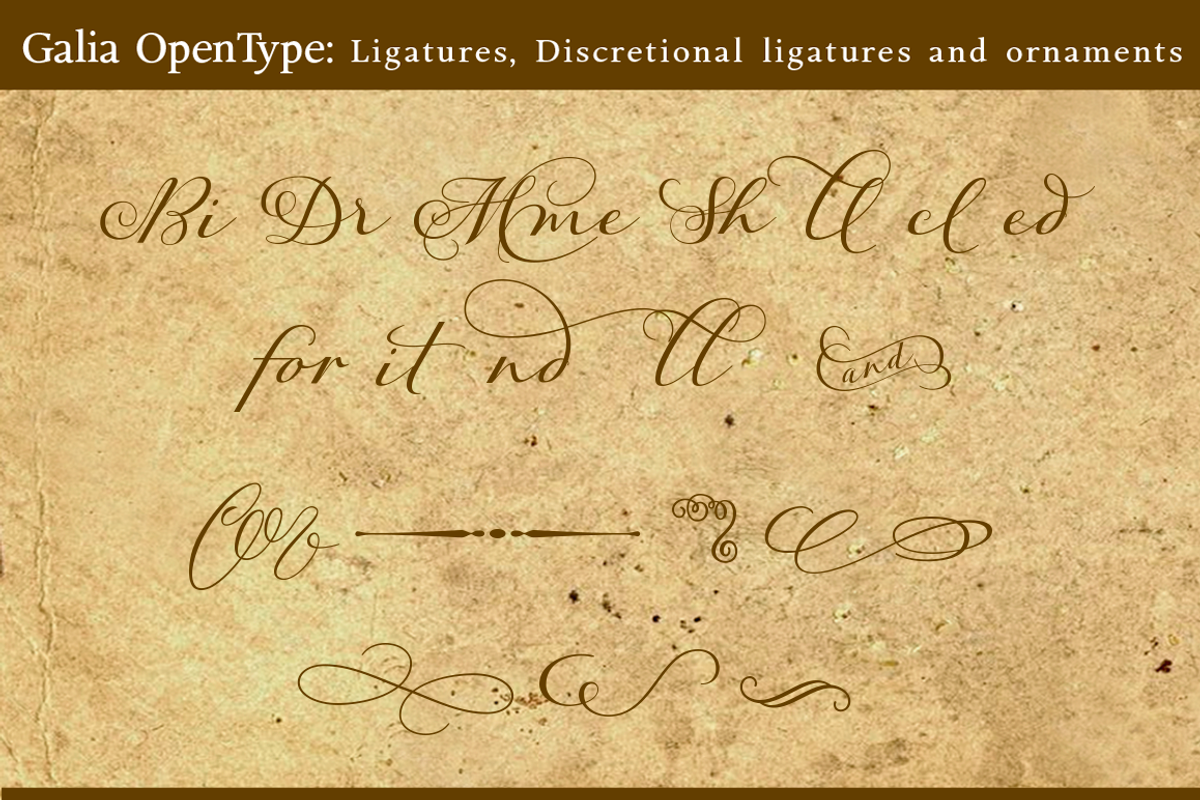 Galia OpenType: Ligatures, Discretional ligatures and ornaments
Bi Dr Mme Sh ll cl ed
for it nd ll and